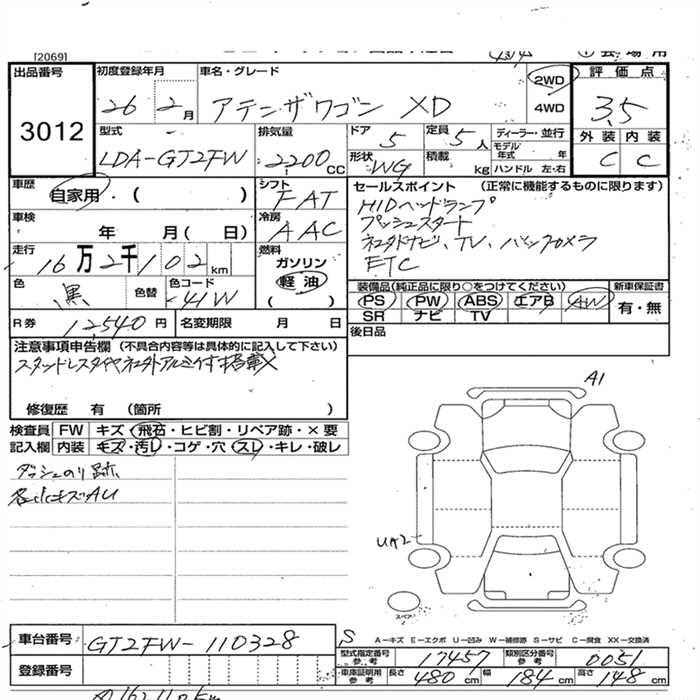 [2069]
出品番号 3012
初度登録年月 26 2月
車名・グレード アテンザワゴン XD
2WD
4WD
評価点 3.5
外装 内装
C C
型式 LDA-GJ2FW
排気量 2200 CC
ドア 5
定員 5人
形状 WG
積載 kg
ディーラー・並行
モデル年式 年
ハンドル 左・右
車歴 自家用・( )
シフト FAT
車検 年 月(日)
冷房 AAC
走行 16万2千102km
燃料 ガソリン 軽油 ( )
色 黒
色替
色コード 41W
R券 12,540円
名変期限 月 日
セールスポイント (正常に機能するものに限ります)
HIDヘッドランプ
プッシュスタート
ネエタドナビ、TV、バックカメラ
ETC
装備品(純正品に限り○をつけてください)
PS PW ABS エアB AW
SR ナビ TV
新車保証書
有・無
後日品
注意事項申告欄 (不具合内容等は具体的に記入して下さい)
スタッドレスタイヤ 社外アルミ付 搭載
修復歴 有 (箇所 )
検査員記入欄
FW キズ・飛石・ヒビ割・リペア跡・×要
内装 キズ・汚レ・コゲ・穴・スレ・キレ・破レ
ダッシュのり跡
各小キズAU
A1
UA2
スペア
車台番号 GJ2FW-110328
S
登録番号
A-キズ E-エクボ U-凹み W-補修跡 S-サビ C-腐食 XX-交換済
型式指定番号 参考 17457
類別区分番号 参考 0051
車庫証明用 参考 長さ 480 cm 幅 184 cm 高さ 148 cm